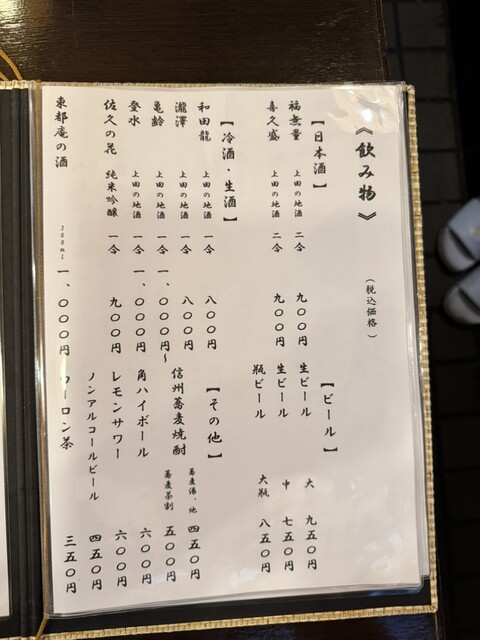 《飲み物》
(税込価格)
【日本酒】
福無量 上田の地酒 二合 九〇〇円
喜久盛 上田の地酒 二合 九〇〇円
【冷酒・生酒】
和田龍 上田の地酒 一合 八〇〇円
瀧澤 上田の地酒 一合 八〇〇円
亀齢 上田の地酒 一合 一、〇〇〇円~
登水 上田の地酒 一合 一、〇〇〇円
佐久の花 純米吟醸 一合 九〇〇円
東都庵の酒 300ml 一、〇〇〇円
【ビール】
生ビール 大 九五〇円
生ビール 中 七五〇円
瓶ビール 大瓶 八五〇円
【その他】
信州蕎麦焼酎 蕎麦湯、他 四五〇円
蕎麦茶割 五〇〇円
角ハイボール 六〇〇円
レモンサワー 六〇〇円
ノンアルコールビール 四五〇円
ウーロン茶 三五〇円